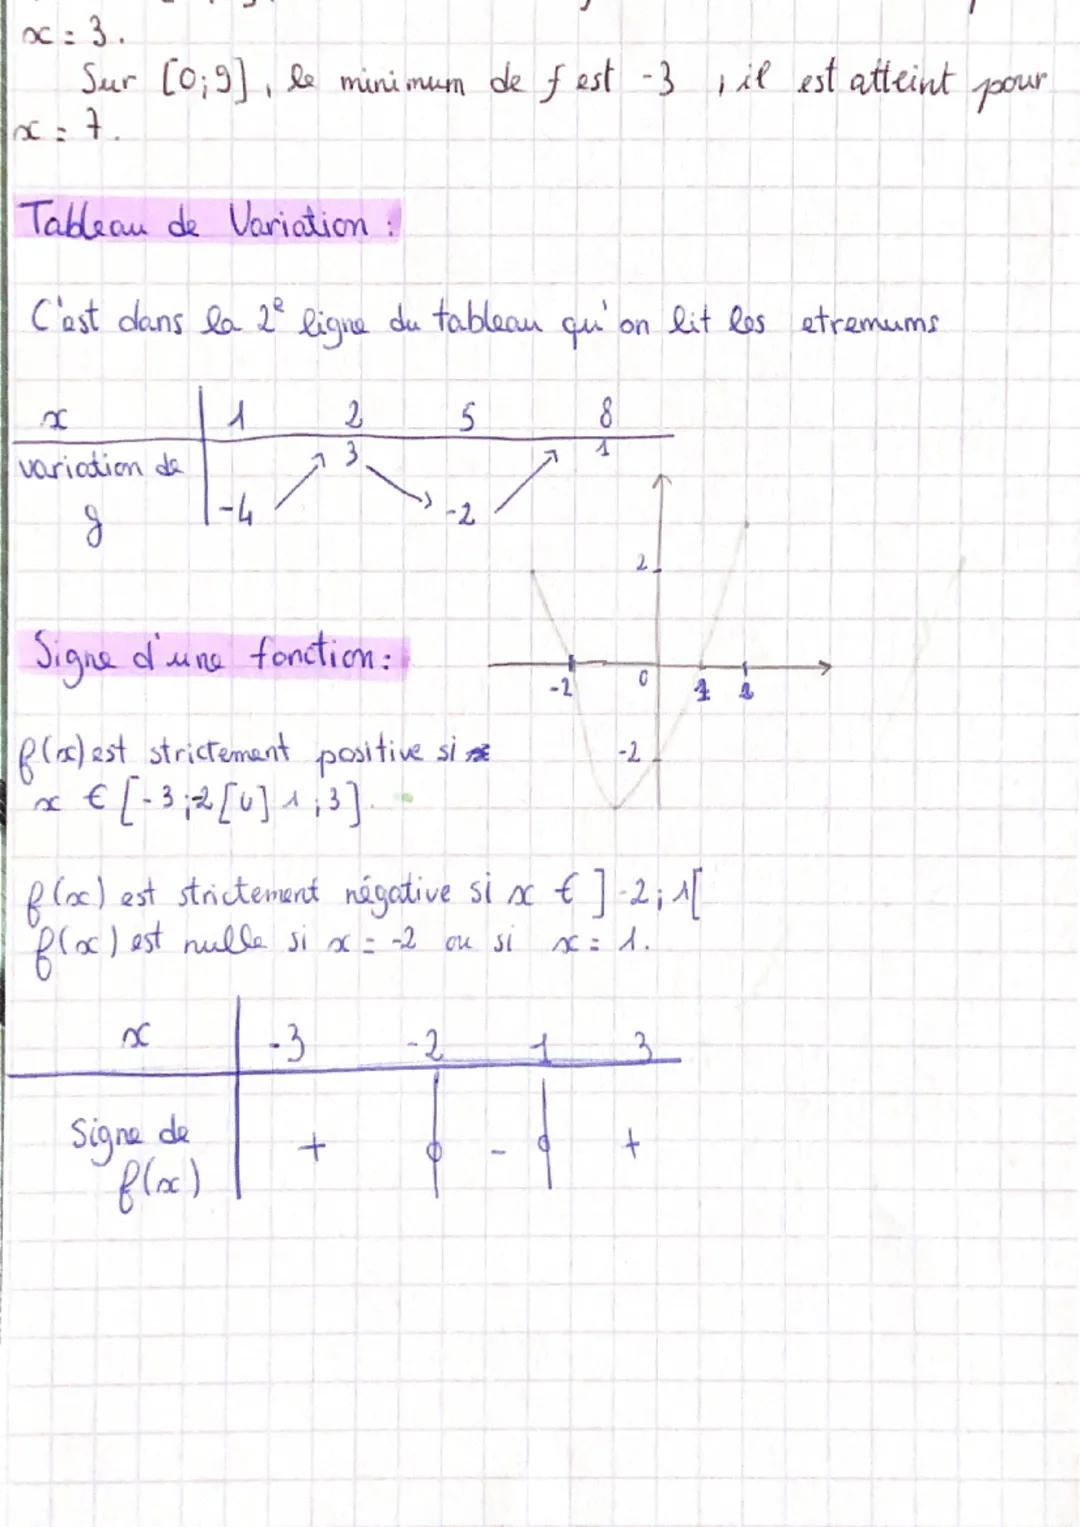 x = 3.
Sur [0;9], le minimum de f est -3 , il est atteint pour
x = 7.
Tableau de Variation :
C'est dans la 2e ligne du tableau qu'on lit les etremums
x 1 2 5 8
variation de 3 1
g -4 -2
2
Signe d'une fonction :
-2 0 1 2
f(x) est strictement positive si
-2
x € [-3;-2[U]1;3].
f(x) est strictement négative si x € ]-2;1[
f(x) est nulle si x = -2 ou si x = 1.
x -3 -2 1 3
Signe de + - +
f(x)